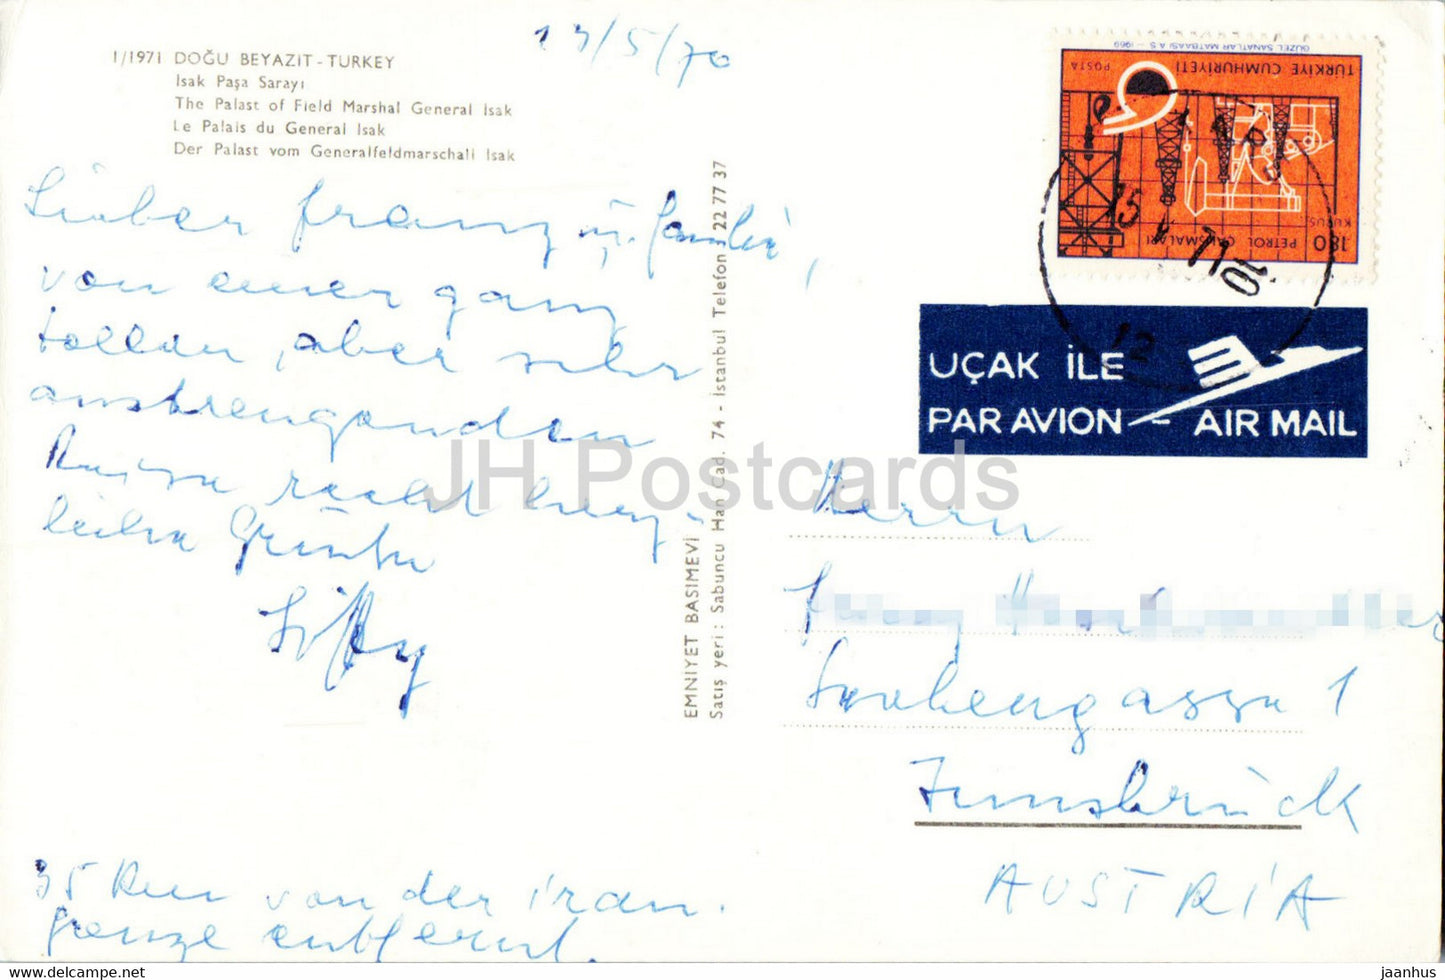 13/5/70
1/1971 DOĞU BEYAZIT - TURKEY
Isak Paşa Sarayı
The Palast of Field Marshal General Isak
Le Palais du General Isak
Der Palast vom Generalfeldmarschall Isak
Lieber Franz u. Familie,
von einer ganz
tollen, aber sehr
anstrengenden
Reise recht herz-
liche Grüße
35 km von der iran.
grenze entfernt.
EMNİYET BASIMEVİ
Satış yeri : Sabuncu Han Cad. 74 - İstanbul Telefon : 22 77 37
GÜZEL SANATLAR MATBAASI A.S. - 1969
TÜRKİYE CUMHURİYETİ
POSTA
180 KURUŞ
PETROL ÇALIŞMALARI
15
71
12
UÇAK İLE
PAR AVION
AIR MAIL
Herrn
1
Innsbrück
AUSTRIA
JH Postcards
jaanhus.com